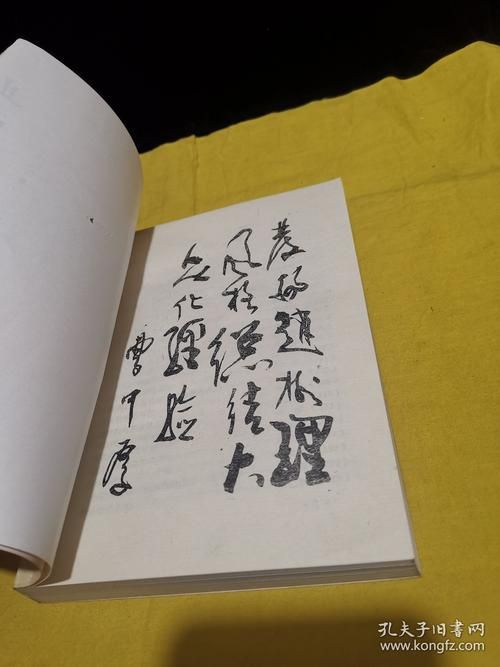 发扬赵树理
风格总结大
众化经验
曹中厚
孔夫子旧书网
www.kongfz.com